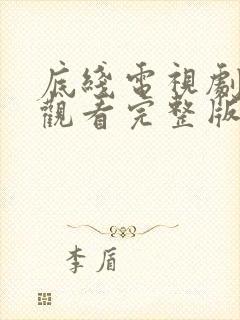 底綫電視劇
觀看完整版
李盾